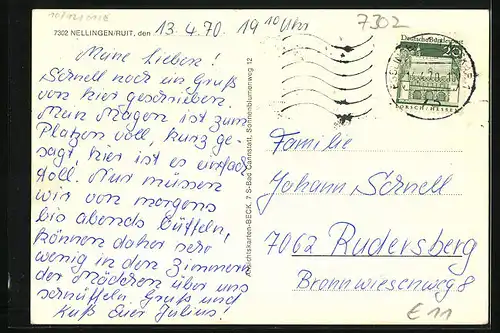 10/121018
7302 NELLINGEN/RUIT, den 13.4.70. 19 10 Uhr
Meine Lieben!
Schnell noch ein Gruß
von hier geschrieben.
Mein Magen ist zum
Platzen voll, kurz ge-
sagt, hier ist es einfach
toll. Nur müssen
wir von morgens
bis abends büffeln,
können daher sehr
wenig in den Zimmern
der Mädchen über uns
schnüffeln. Gruß und
Kuß Euer Julius!
Ansichtskarten-BECK, 7 S-Bad Cannstatt, Sonnenblumenweg 12
7302
Deutsche Bundespost
20
LORSCH/HESSEN
Familie
Johann Schnell
7062 Rudersberg
Bronnwiesenweg 8
€ 11